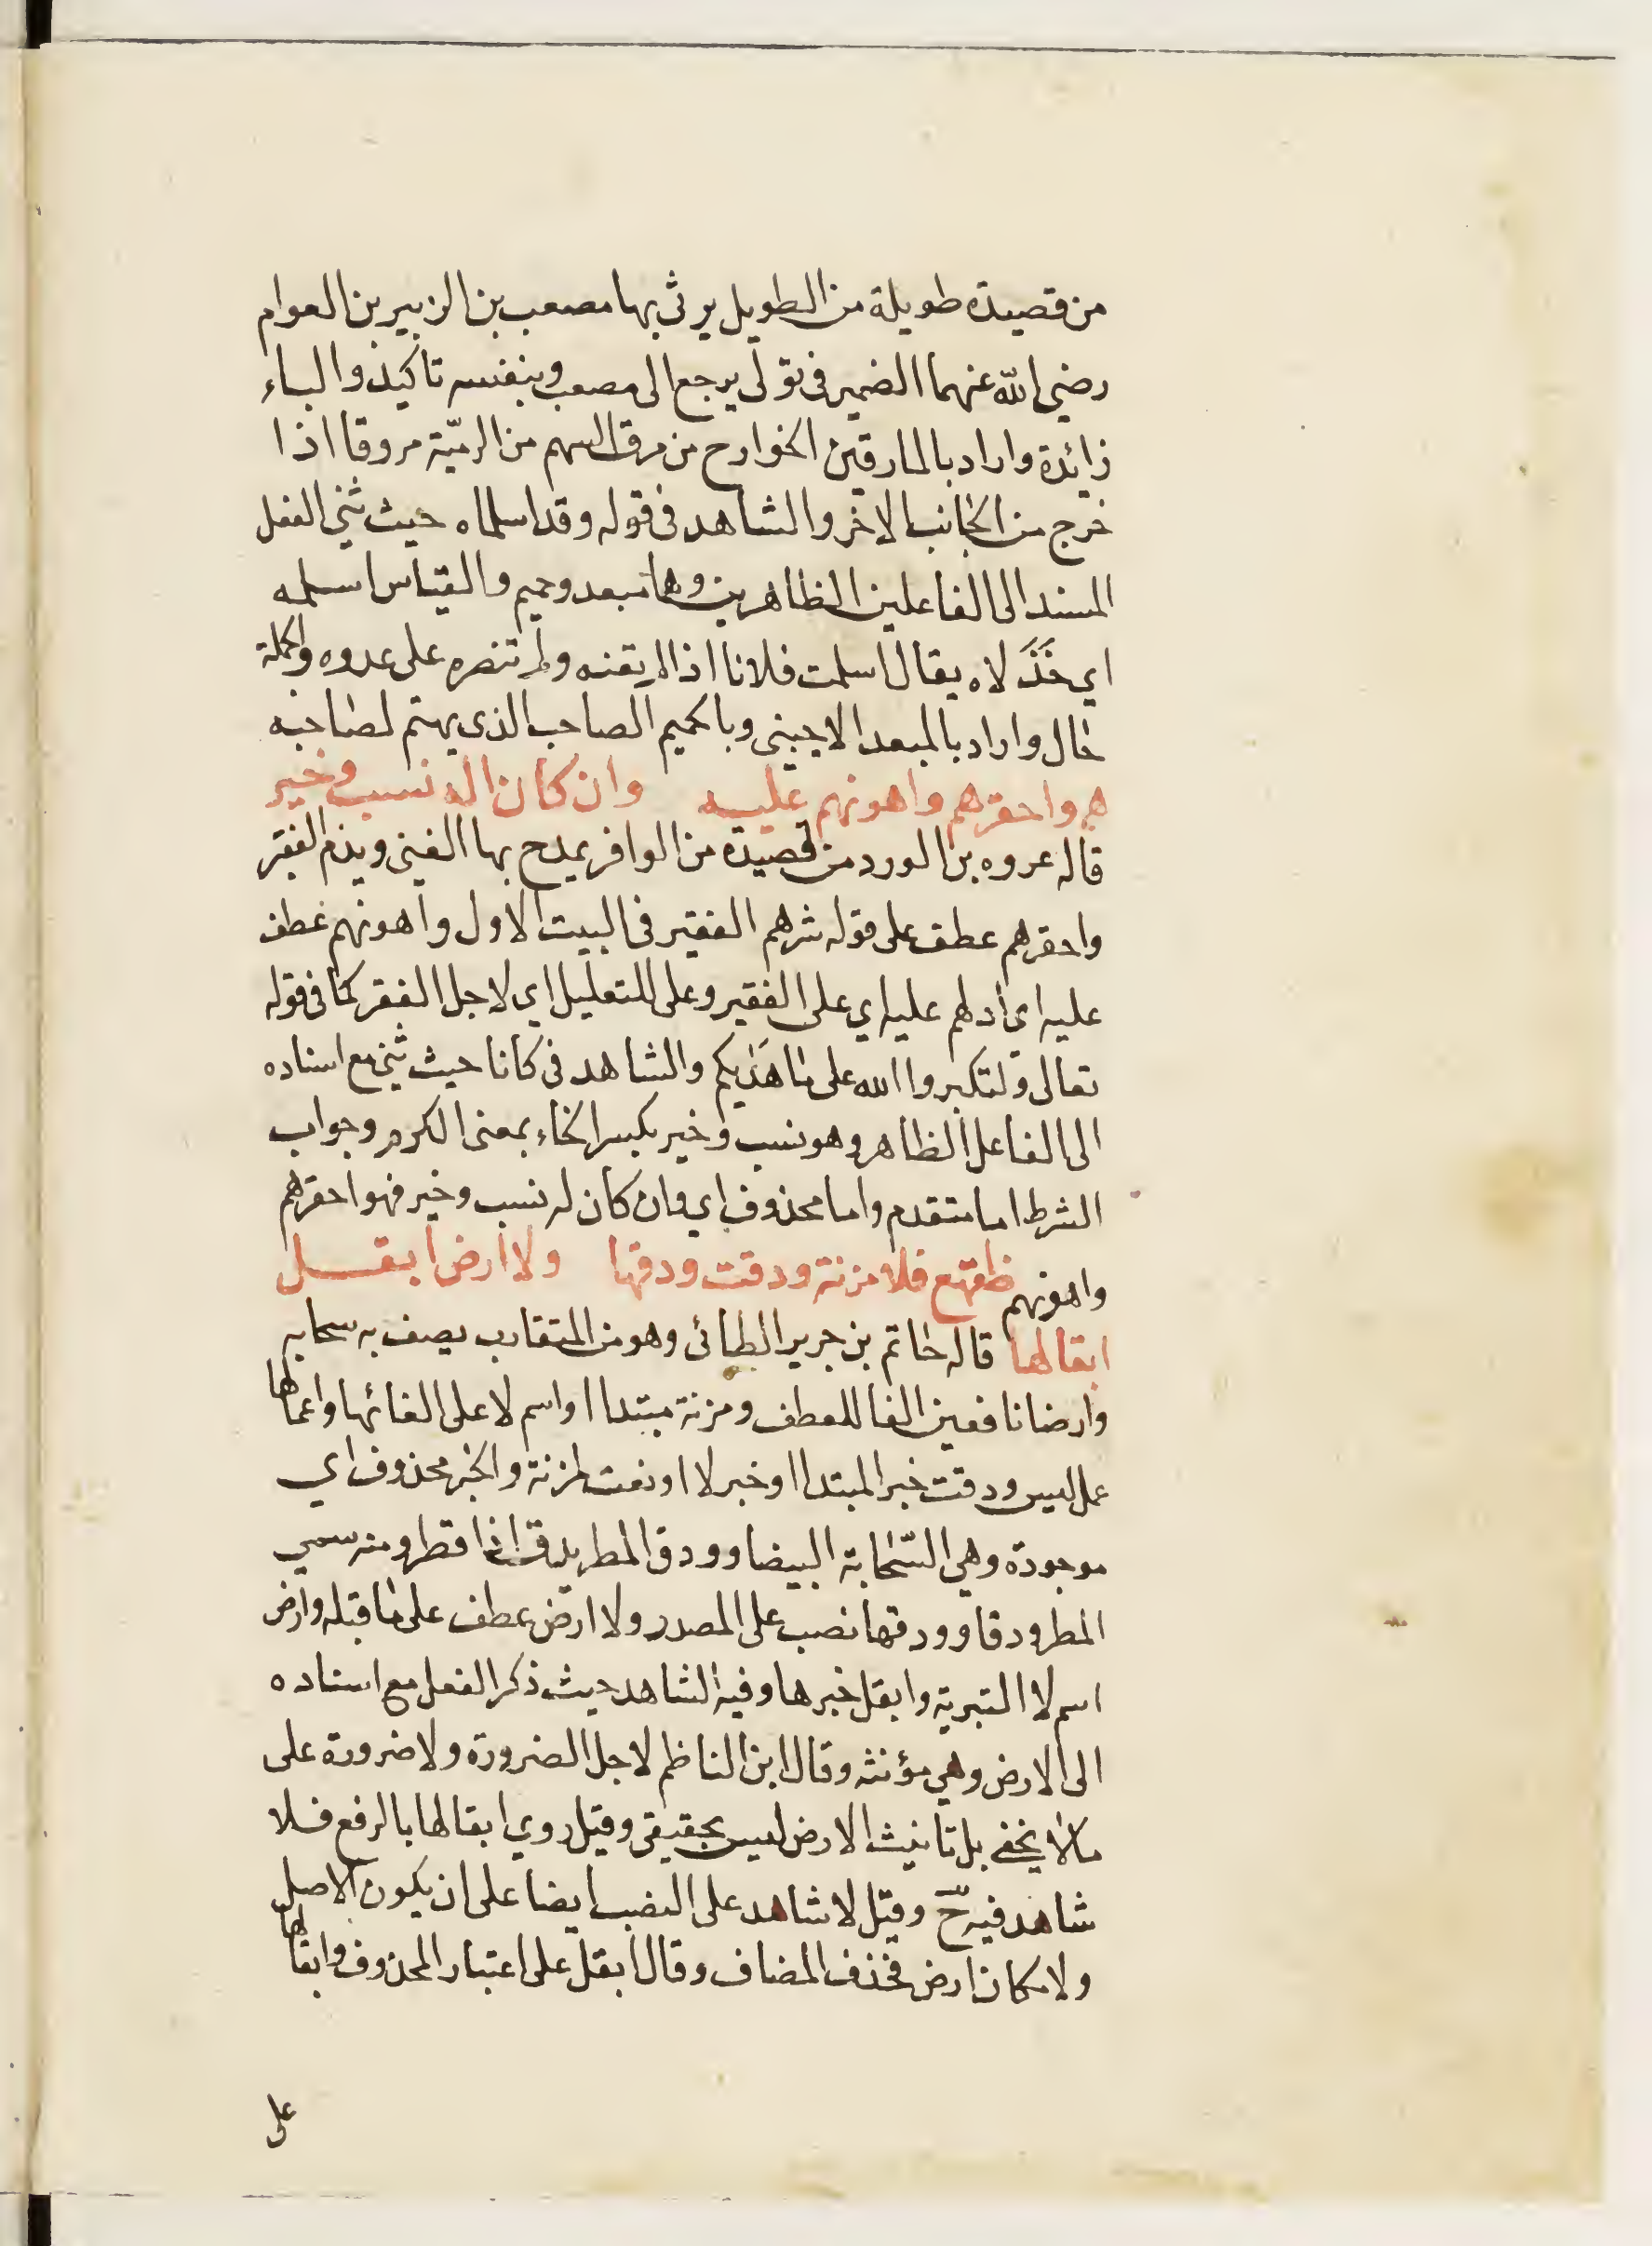 من قصيدة طويلة من الطويل يرثى بها مصعب بن الزبير بن العوام
رضي الله عنهما الضمير فى تولى يرجع الى مصعب وبنفسه تاكيد والباء
زائدة واراد بالمارقين الخوارج من مرق السهم من الرميّة مروقا اذا
خرج من الجانب الاخر والشاهد فى قوله وقد اسلماه حيث ثنى الفعل
المسند الى الفاعلين الظاهرين وهما مبعد وحميم والقياس اسلمه
اي خَذَلاه يقال اسلمت فلانا اذا لم تعنه ولم تنصره على عدوه والجملة
حال واراد بالمبعد الاجنبى وبالحميم الصاحب الذى يهتم لصاحبه
هر واحقرهم واهونهم عليه وان كانا له نسب وخير
قاله عروه بن الورد من قصيدة من الوافر يمدح بها الغنى ويذم الفقر
واحقرهم عطف على قوله شرهم الفقير فى البيت الاول واهونهم عطف
عليه اى أدلهم عليه اي على الفقير وعلى للتعليل اي لاجل الفقر كما فى قوله
تعالى ولتكبروا الله على ما هَدٰيكم والشاهد فى كانا حيث ثنى مع اسناده
الى الفاعل الظاهر وهو نسب وخير بكسر الخاء بمعنى الكرم وجواب
الشرط اما متقدم واما محذوف اي وان كان له نسب وخير فهو احقرهم
واهونهم ظقهع فلا مزنة ودقت ودقها ولا ارض ابقل
ابقالها قاله حاتم بن جرير الطائى وهو من المتقارب يصف به سحابه
وارضا نافعين الفا للعطف ومزنة مبتدا او اسم لا على الغائها واعمالها
عمل ليس ودقت خبر المبتدا او خبر لا او نعت لمزنة والخبر محذوف اي
موجودة وهي السّحابة البيضا وودق المطر يدق اذا قطر ومنه سمي
المطر ودقا وودقها نصب على المصدر ولا ارض عطف على ما قبله وارض
اسم لا التبرية وابقل خبرها وفيه الشاهد حيث ذكر الفعل مع اسناده
الى الارض وهي مؤنثه وقال ابن الناظم لاجل الضرورة ولا ضرورة على
مالا يخفى بل تانيث الارض ليس بحقيقى وقيل روي ابقالها بالرفع فلا
شاهد فيه حّ وقيل لا شاهد على النصب ايضا على ان يكون الاصل
ولا مكان ارض فحذف المضاف وقال ابقل على اعتبار المحذوف وابقالها
على